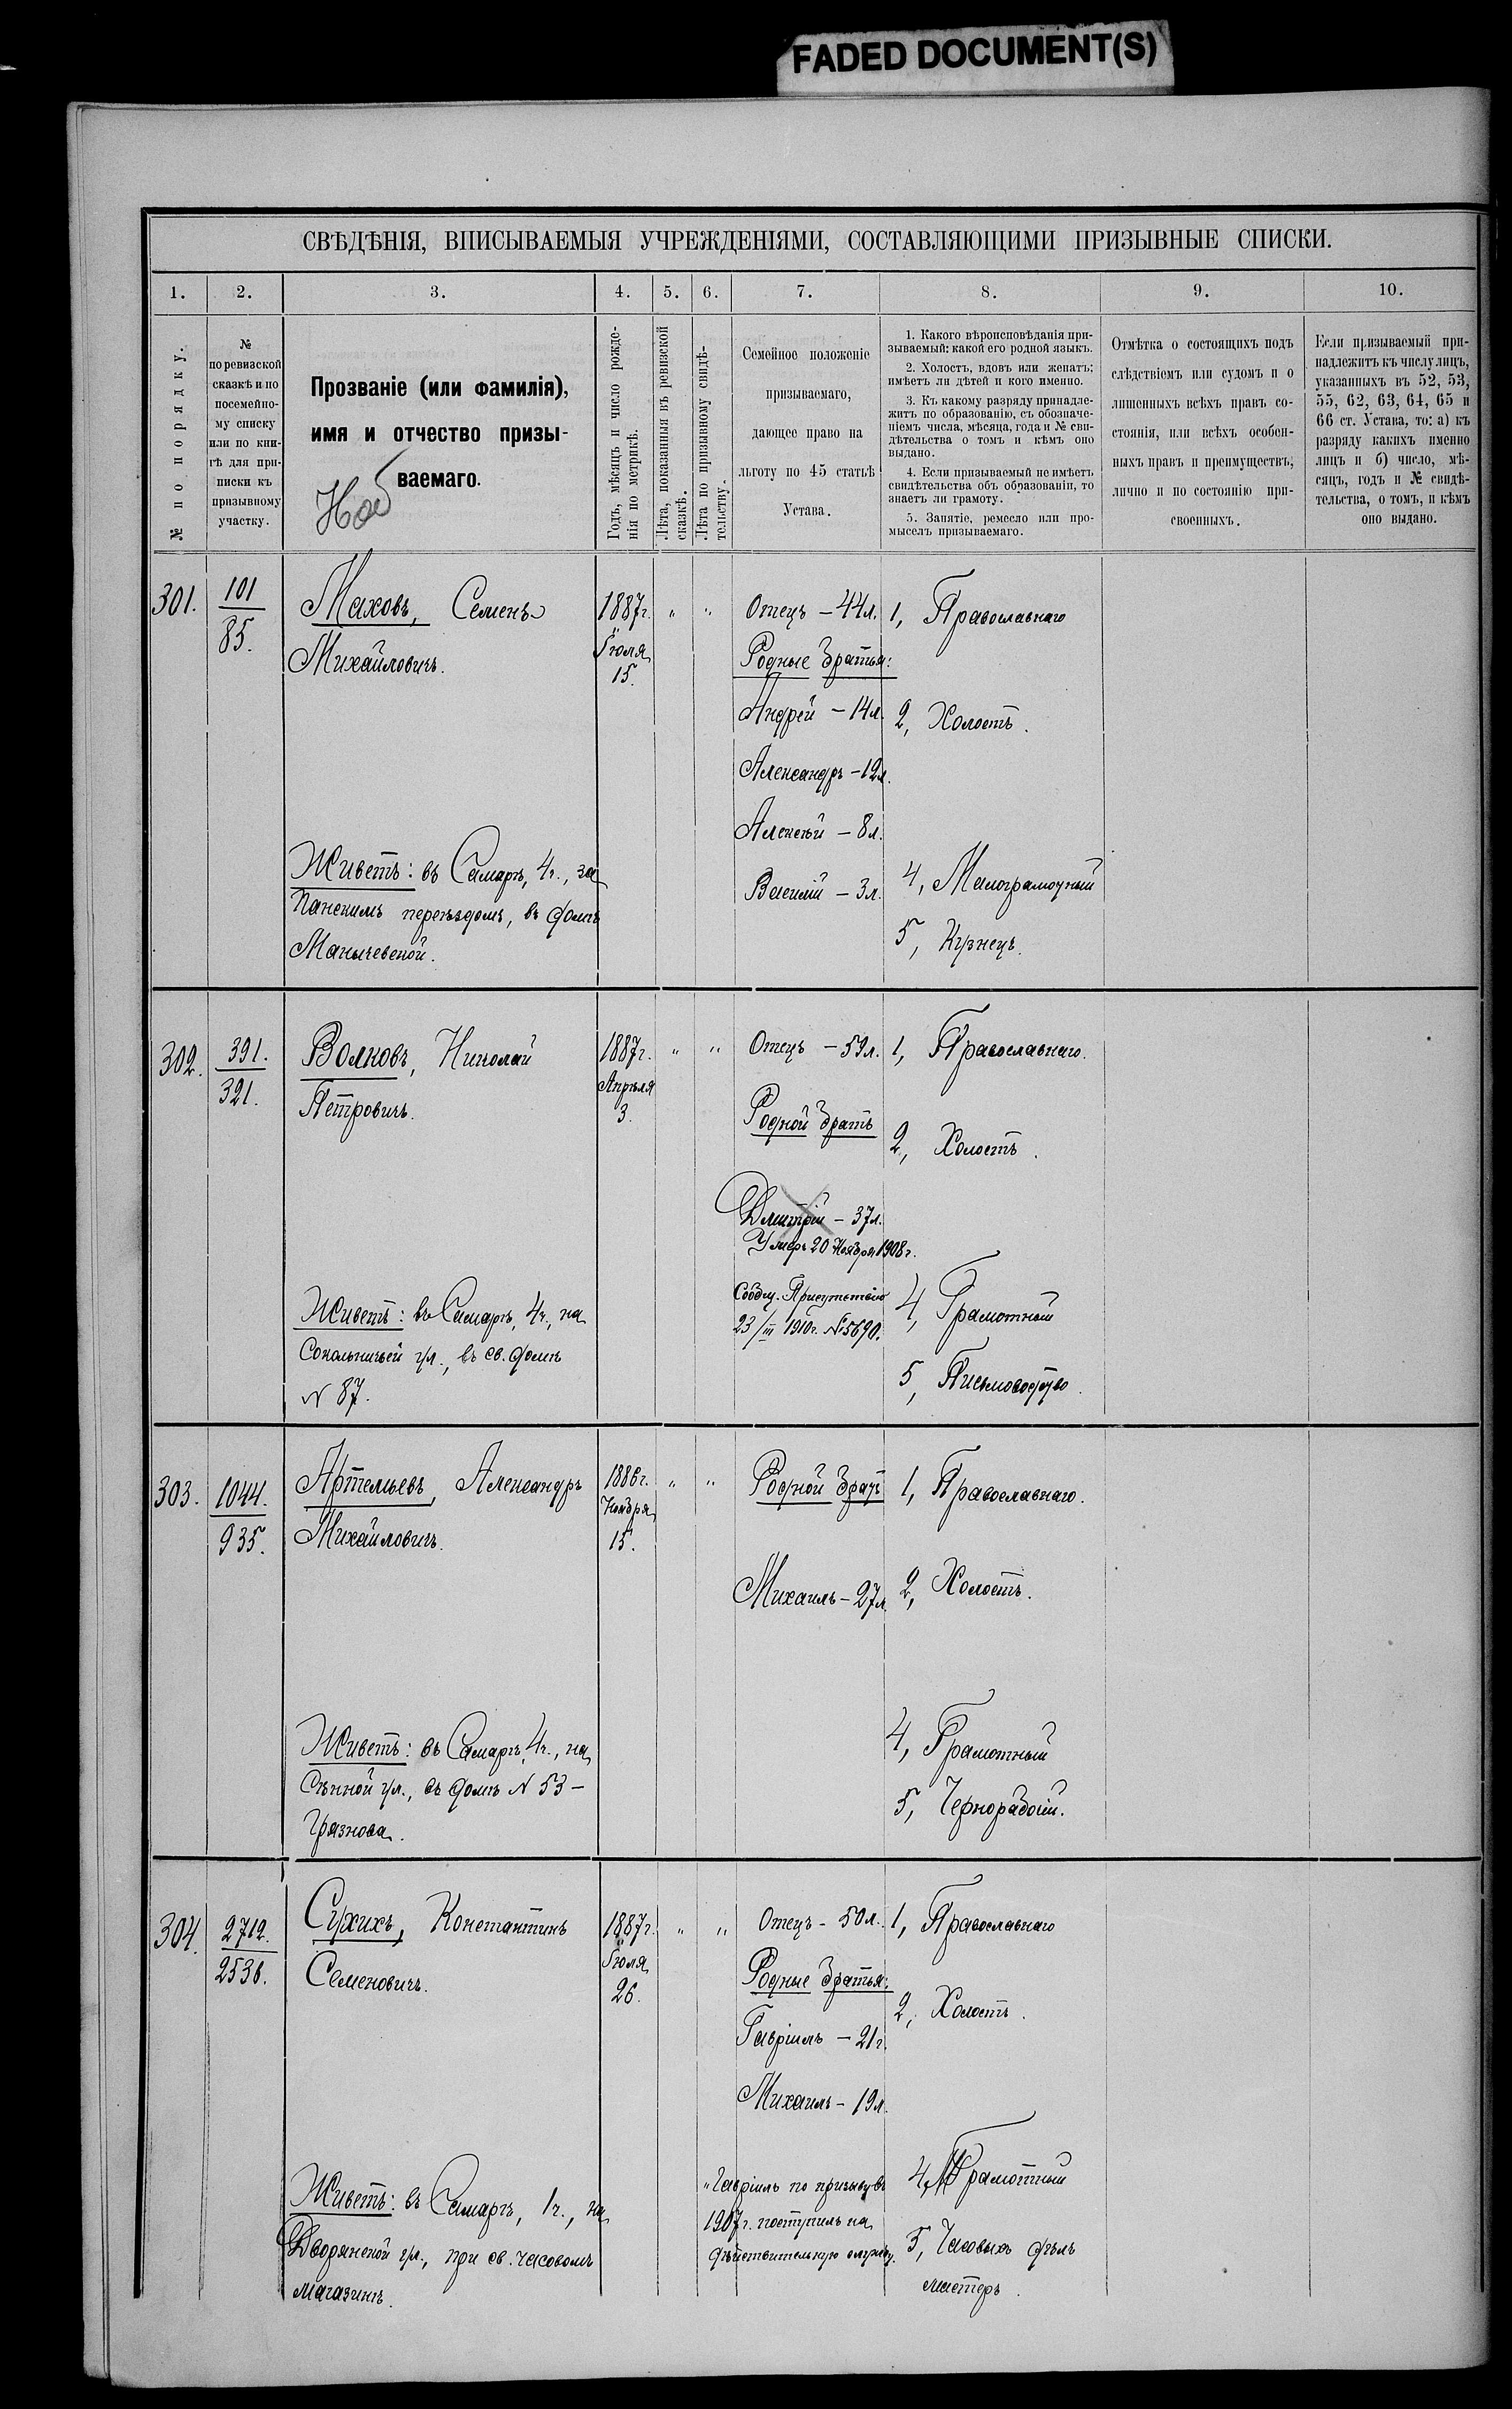 FADED DOCUMENT(S)
СВѢДѢНІЯ, ВПИСЫВАЕМЫЯ УЧРЕЖДЕНІЯМИ, СОСТАВЛЯЮЩИМИ ПРИЗЫВНЫЕ СПИСКИ.
1. 2. 3. 4. 5. 6. 7. 8. 9. 10.
№ по порядку.
№
по ревизской
сказкѣ и по
посемейно-
му списку
или по кни-
гѣ для при-
писки къ
призывному
участку.
Прозваніе (или фамилія),
имя и отчество призы-
ваемаго.
Годъ, мѣсяцъ и число рожде-
нія по метрикѣ.
Лѣта, показанныя въ ревизской
сказкѣ.
Лѣта по призывному свидѣ-
тельству.
Семейное положеніе
призываемаго,
дающее право на
льготу по 45 статьѣ
Устава.
1. Какого вѣроисповѣданія при-
зываемый; какой его родной языкъ.
2. Холостъ, вдовъ или женатъ;
имѣетъ ли дѣтей и кого именно.
3. Къ какому разряду принадле-
житъ по образованію, съ обозначе-
ніемъ числа, мѣсяца, года и № сви-
дѣтельства о томъ и кѣмъ оно
выдано.
4. Если призываемый не имѣетъ
свидѣтельства объ образованіи, то
знаетъ ли грамоту.
5. Занятіе, ремесло или про-
мыселъ призываемаго.
Отмѣтка о состоящихъ подъ
слѣдствіемъ или судомъ и о
лишенныхъ всѣхъ правъ со-
стоянія, или всѣхъ особен-
ныхъ правъ и преимуществъ,
лично и по состоянію при-
своенныхъ.
Если призываемый при-
надлежитъ къ числу лицъ,
указанныхъ въ 52, 53,
55, 62, 63, 64, 65 и
66 ст. Устава, то: а) къ
разряду какихъ именно
лицъ и б) число, мѣ-
сяцъ, годъ и № свидѣ-
тельства, о томъ, и кѣмъ
оно выдано.
301.
101
85.
Маховъ, Семенъ
Михайловичъ.
Живетъ: въ Самарѣ, 4 ч., за
Панскимъ переѣздомъ, въ домѣ
Манычевской.
1887 г.
Іюля
15.
" "
Отецъ – 44 л.
Родные братья:
Андрей – 14 л.
Александръ – 12 л.
Алексѣй – 8 л.
Василій – 3 л.
1, Православнаго
2, Холостъ.
4, Малограмотный
5, Кузнецъ.
302.
391.
321.
Волковъ, Николай
Петровичъ.
Живетъ: въ Самарѣ, 4 ч., на
Сокольничьей ул., въ св. домѣ
№ 87.
1887 г.
Апрѣля
3.
" "
Отецъ – 59 л.
Родной братъ
Дмитрій – 37 л.
Умеръ 20 Ноября 1908 г.
Сообщ. Присутствію
23/III 1910 г. № 5690.
1, Православнаго.
2, Холостъ.
4, Грамотный
5, Письмоводство.
303.
1044.
935.
Артемьевъ, Александръ
Михайловичъ.
Живетъ: въ Самарѣ, 4 ч., на
Сѣнной ул., въ домѣ № 53 –
Грязнова.
1886 г.
Ноября
15.
" "
Родной братъ
Михаилъ – 27 л.
1, Православнаго.
2, Холостъ.
4, Грамотный
5, Чернорабочій.
304.
2712.
2536.
Сухихъ, Константинъ
Семеновичъ.
Живетъ: въ Самарѣ, 1 ч., на
Дворянской ул., при св. часовомъ
магазинѣ.
1887 г.
Іюля
26.
" "
Отецъ – 50 л.
Родные братья:
Гавріилъ – 21 г.
Михаилъ – 19 л.
"Гавріилъ по призыву въ
1907 г. поступилъ на
дѣйствительную службу.
1, Православнаго
2, Холостъ.
4, Грамотный
5, Часовыхъ дѣлъ
мастеръ.